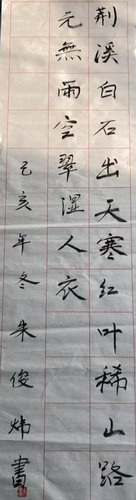 荆溪白石出天寒红叶稀山路
元無雨空翠湿人衣
己亥年冬朱俊炜書